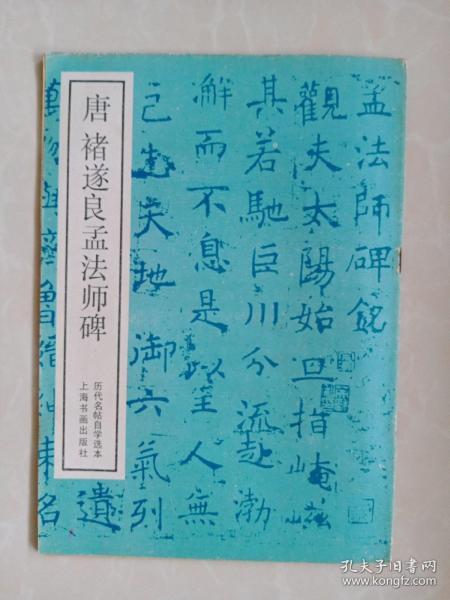 唐 褚遂良孟法师碑
历代名帖自学选本
上海书画出版社
孟法師碑銘
觀夫太陽始旦指崦嵫
其若馳巨川分流赴渤
澥而不息是以至人無
己先天地御六氣列
萬物
遺名
孔夫子旧书网
www.kongfz.com